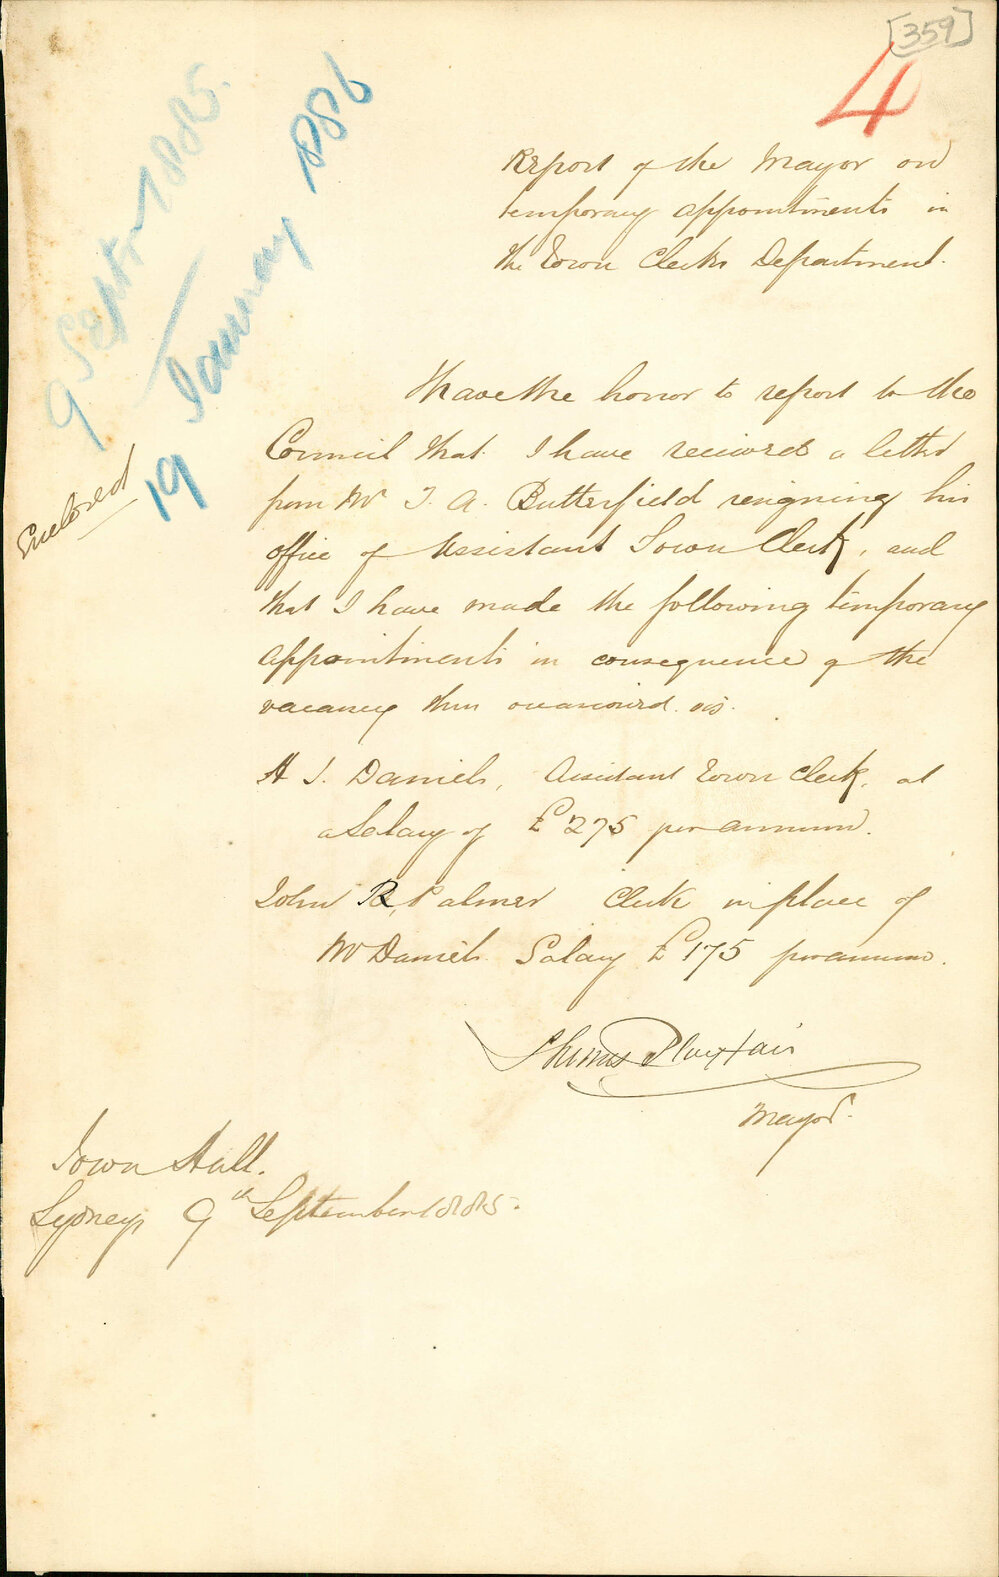 [359]
4
9 Septr 1885.
19 January 1886
Report of the Mayor on
temporary appointments in
the Town Clerks Department.
I have the honor to report to the
Council that I have received a letter
Enclosed
from Mr T. A. Butterfield resigning his
office of Assistant Town Clerk, and
that I have made the following temporary
appointments in consequence of the
vacancy thus occasioned. viz.
H J. Daniels, Assistant Town Clerk, at
a Salary of £275 per annum.
John R, Palmer Clerk in place of
Mr Daniels Salary £175 per annum.
Thomas Playfair
Mayor.
Town Hall.
Sydney 9th September 1885.